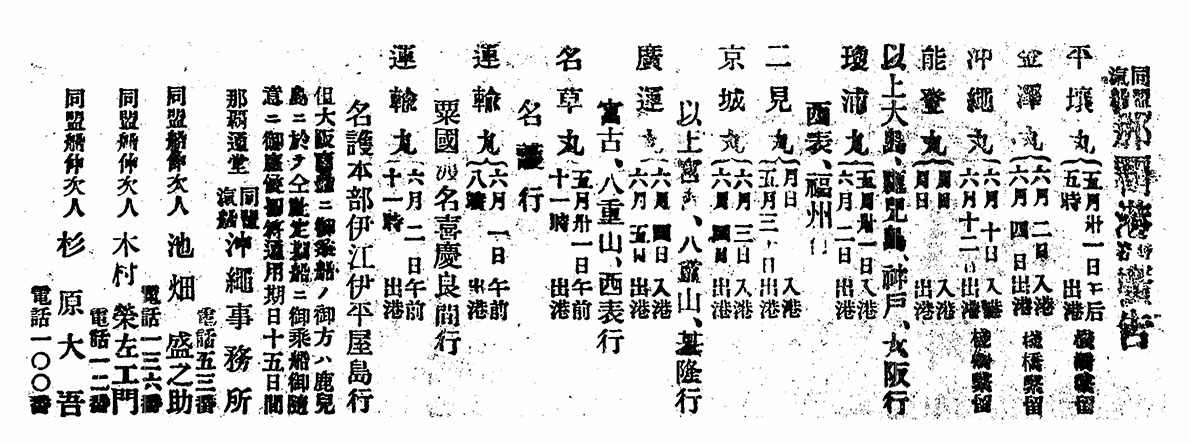 同盟汽船那覇港
平壤丸 五月卅一日午后五時出港 棧橋繫留
金澤丸 六月二日入港 六月四日出港 棧橋繫留
沖繩丸 六月十日入港 六月十二日出港 棧橋繫留
能登丸 月日入港 月日出港
以上大島、鹿兒島、神戶、大阪行
瓊浦丸 五月卅一日入港 六月二日出港
西表、福州行
二見丸 月日入港 五月三日出港
京城丸 六月三日入港 六月四日出港
以上宮古、八重山、基隆行
廣運丸 六月四日入港 六月五日出港
宮古、八重山、西表行
名草丸 五月卅一日午前十一時出港
名護行
運輸丸 六月一日午前八時出港
粟國渡名喜慶良間行
運輸丸 六月二日午前十一時出港
名護本部伊江伊平屋島行
但大阪商船ニ御乘船ノ御方ハ鹿兒
島ニ於テ仝社定期船ニ御乘船御隨
意ニ御座候 通用期日十五日間
那覇通堂 同盟汽船沖繩事務所
電話五三番
同盟船仲次人 池畑盛之助
電話一三六番
同盟船仲次人 木村榮左工門
電話一二番
同盟船仲次人 杉原大吾
電話一〇〇番